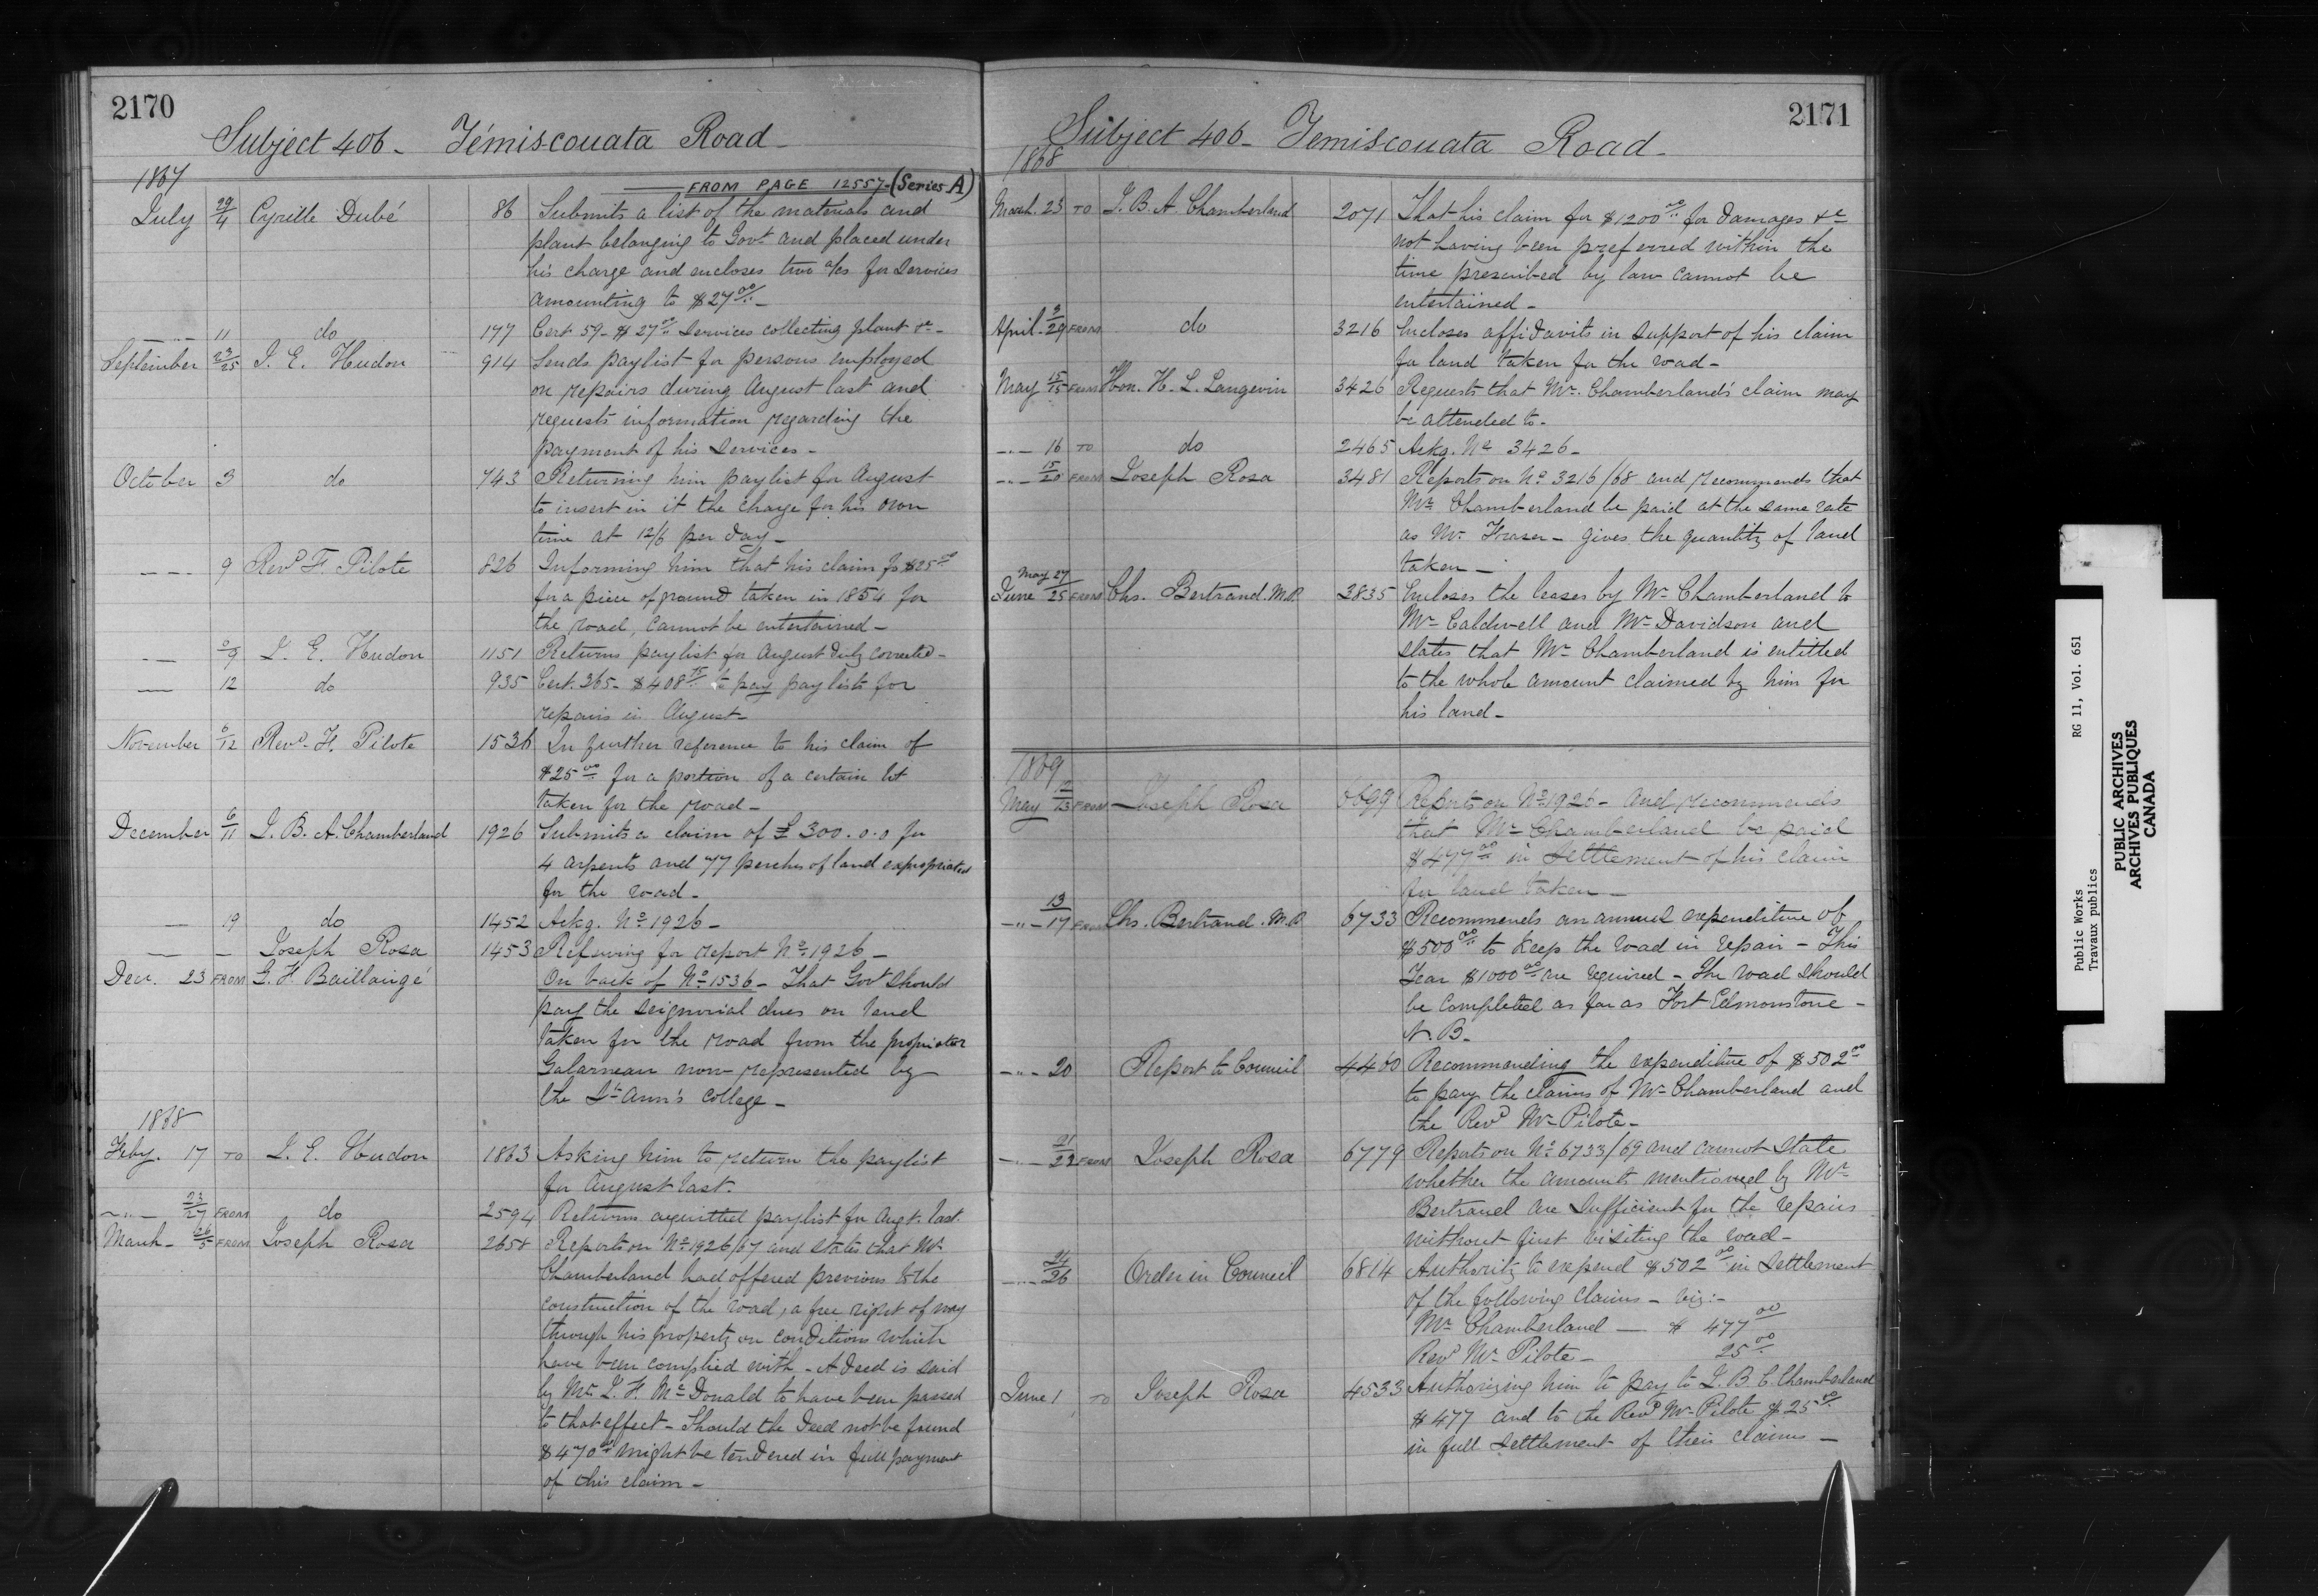 2170
Subject 406 - Témiscouata Road -
1867
FROM PAGE 12557 - (Series A)
July 29/4 Cyrille Dubé 86 Submits a list of the materials and
plant belonging to Govt. and placed under
his charge and encloses two a/cs for services
amounting to $27.00 -
- " - 11 do 177 Cert. 59 - $27.00 services collecting plant &c -
September 23/25 J. E. Hudon 914 Sends paylist for persons employed
on repairs during August last and
requests information regarding the
payment of his services -
October 3 do 743 Returning him paylist for August
to insert in it the charge for his own
time at 12/6 per day -
9 Revd. F. Pilote 826 Informing him that his claim for $25.00
for a piece of ground taken in 1854 for
the road, cannot be entertained -
J. E. Hudon 1151 Returns paylist for August duly corrected -
12 do 935 Cert. 365 - $408 to pay paylists for
repairs in August -
November 6/12 Revd. F. Pilote 1536 In further reference to his claim of
$25.00 for a portion of a certain lot
taken for the road -
December 6/11 J. B. A. Chamberland 1926 Submits a claim of £300.0.0 for
4 arpents and 77 perches of land expropriated
for the road -
19 do 1452 Ackg. No. 1926 -
Joseph Rosa 1453 Referring for report No. 1926 -
Dec. 23 FROM G. F. Baillairgé On back of No. 1536 - That Govt should
pay the seignorial dues on land
taken for the road from the proprietor
Galarneau now represented by
the St. Ann's College -
1868
Feby. 17 TO J. E. Hudon 1863 Asking him to return the paylist
for August last.
- " - 23/27 FROM do 2594 Returns acquitted paylist for Augt. last.
March - 26/5 FROM Joseph Rosa 2658 Reports on No. 1926/67 and states that Mr.
Chamberland had offered previous to the
construction of the road, a free right of way
through his property on conditions which
have been complied with - A Deed is said
by Mr. L. F. McDonald to have been passed
to that effect - Should the Deed not be found
$470.00 might be tendered in full payment
of this claim -
2171
Subject 406 - Temiscouata Road -
1868
March 23 TO J. B. A. Chamberland 2071 That his claim for $1200.00 for damages &c
not having been preferred within the
time prescribed by law cannot be
entertained -
April 9/29 FROM do 3216 Encloses affidavits in support of his claim
for land taken for the road -
May 15/15 FROM Hon. H. L. Langevin 3426 Requests that Mr. Chamberland's claim may
be attended to -
- " - 16 TO do 2465 Ackg. No. 3426 -
- " - 15/20 FROM Joseph Rosa 3481 Reports on No. 3216/68 and recommends that
Mr. Chamberland be paid at the same rate
as Mr. Fraser - gives the quantity of land
taken -
May 27
June /25 FROM Chs. Bertrand. M.P. 3835 Encloses the leases by Mr. Chamberland to
Mr. Caldwell and Mr. Davidson and
states that Mr. Chamberland is entitled
to the whole amount claimed by him for
his land -
1869
May 12/13 FROM Joseph Rosa 6699 Reports on No. 1926 - and recommends
that Mr. Chamberland be paid
$477.00 in settlement of his claim
for land taken -
- " - 13/17 FROM Chs. Bertrand. M.P. 6733 Recommends an annual expenditure of
$500.00 to keep the road in repair - This
Year $1000.00 are required - The road should
be completed as far as Fort Edmonstone -
N. B. -
- " - 20 Report to Council 4460 Recommending the expenditure of $502.00
to pay the claims of Mr. Chamberland and
the Revd. Mr. Pilote -
- " - 21/22 FROM Joseph Rosa 6779 Reports on No. 6733/69 and cannot state
whether the amounts mentioned by Mr.
Bertrand are sufficient for the repairs
without first visiting the road -
- " - 24/26 Order in Council 6814 Authority to expend $502.00 in settlement
of the following claims - viz: -
Mr. Chamberland - $ 477.00
Revd. Mr. Pilote - 25.00
June 1 TO Joseph Rosa 4533 Authorizing him to pay to J. B. C. Chamberland
$477 and to the Revd. Mr. Pilote $25.00
in full settlement of their claims -
Public Works RG 11, Vol. 651
Travaux publics
PUBLIC ARCHIVES
ARCHIVES PUBLIQUES
CANADA